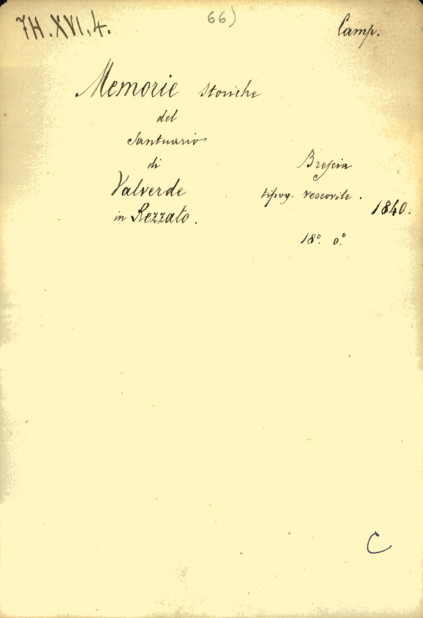 7H.XVI.4.
66)
Camp.
Memorie storiche
del
Santuario
di
Valverde
in Rezzato.
Brescia
tipog. vescovile.
1840.
18°. o.°
C